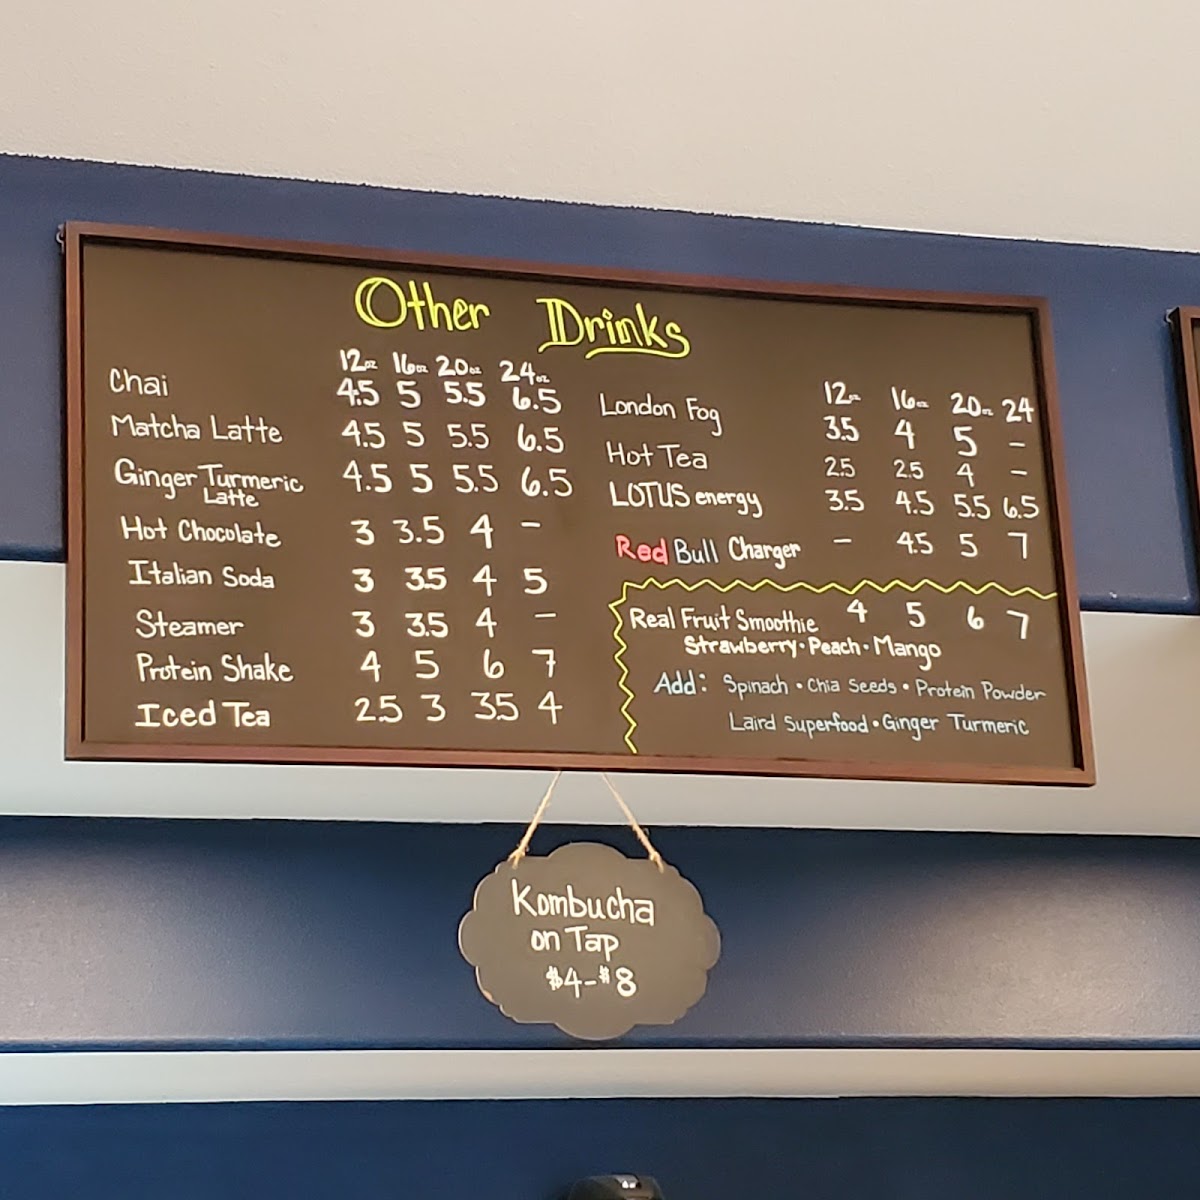 Other Drinks
12oz 16oz 20oz 24oz
Chai 4.5 5 5.5 6.5
Matcha Latte 4.5 5 5.5 6.5
Ginger Turmeric Latte 4.5 5 5.5 6.5
Hot Chocolate 3 3.5 4 -
Italian Soda 3 3.5 4 5
Steamer 3 3.5 4 -
Protein Shake 4 5 6 7
Iced Tea 2.5 3 3.5 4
12oz 16oz 20oz 24
London Fog 3.5 4 5 -
Hot Tea 2.5 2.5 4 -
LOTUS energy 3.5 4.5 5.5 6.5
Red Bull Charger - 4.5 5 7
Real Fruit Smoothie 4 5 6 7
Strawberry • Peach • Mango
Add: Spinach • Chia Seeds • Protein Powder
Laird Superfood • Ginger Turmeric
Kombucha
on Tap
$4-$8